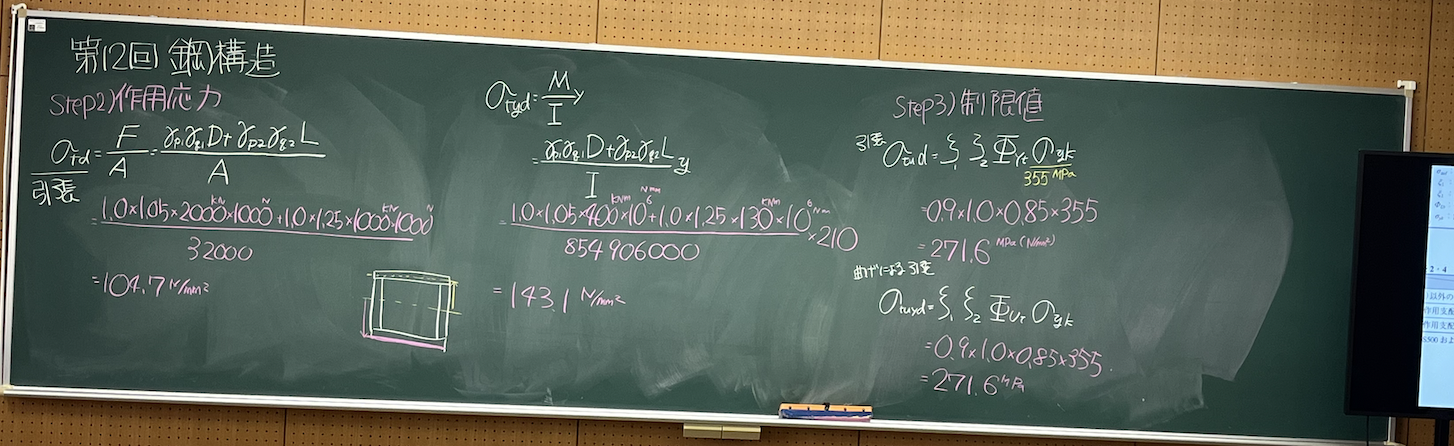 第12回 鋼構造
Step2)作用応力
σtd = F/A = (γp1γq1D+γp2γq2L)/A
引張
= (1.0×1.05×2000kN×1000N+1.0×1.25×1000kN×1000N)/32000
= 104.7 N/mm²
σtyd = M/I y
= (γp1γq1D+γp2γq2L)/I y
= (1.0×1.05×400kNm×10⁶Nmm+1.0×1.25×130kNm×10⁶Nmm)/854906000 ×210
= 143.1 N/mm²
Step3)制限値
引張 σtud = ξ1 ξ2 ΦYt σyk
355 MPa
= 0.9×1.0×0.85×355
= 271.6 MPa (N/mm²)
曲げによる引張
σtuyd = ξ1 ξ2 ΦUt σyk
= 0.9×1.0×0.85×355
= 271.6 MPa
以外の
作用支配
作用支配